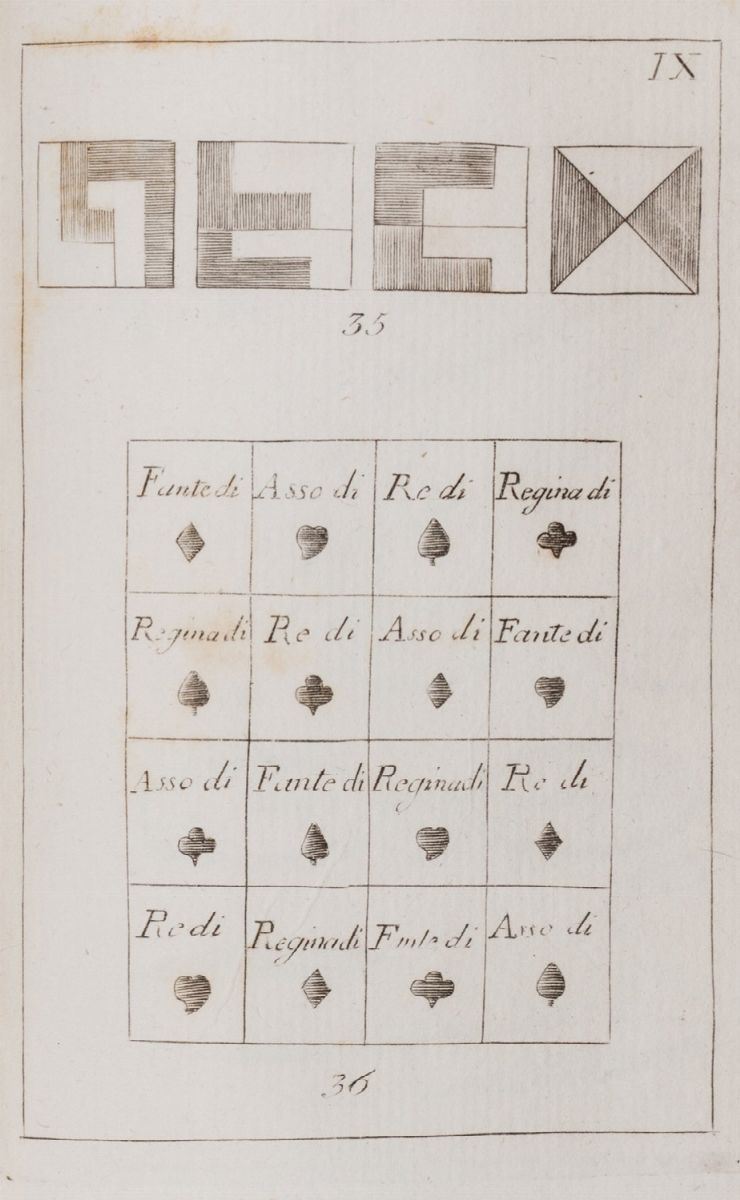 IX
35
Fante di Asso di Re di Regina di
Regina di Re di Asso di Fante di
Asso di Fante di Regina di Re di
Re di Regina di Fante di Asso di
36